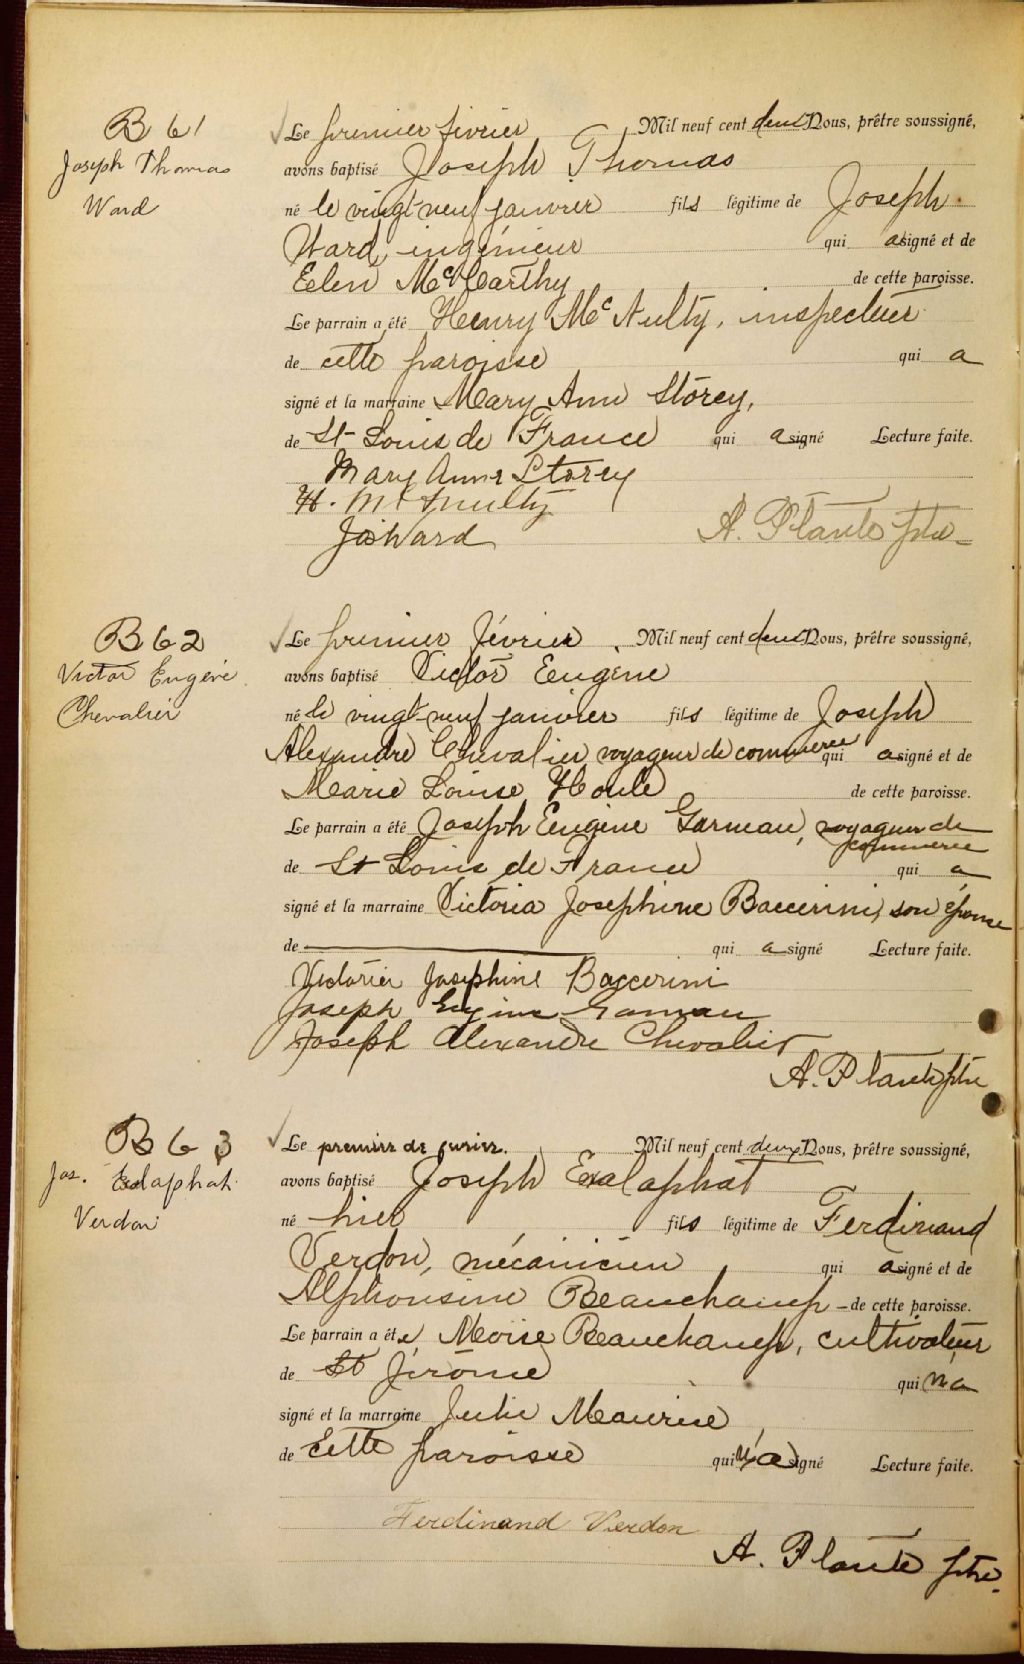 B 61
Joseph Thomas
Ward
Le premier février Mil neuf cent deux Nous, prêtre soussigné,
avons baptisé Joseph Thomas
né le vingt-neuf janvier fils légitime de Joseph
Ward, ingénieur qui a signé et de
Eelen McCarthy de cette paroisse.
Le parrain a été Henry McAulty, inspecteur
de cette paroisse qui a
signé et la marraine Mary Ann Storey,
de St-Louis de France qui a signé Lecture faite.
Mary Anne Storey
H. McAnulty
Jos Ward
A. Plante ptre
B 62
Victor Eugène
Chevalier
Le premier février. Mil neuf cent deux Nous, prêtre soussigné,
avons baptisé Victor Eugène
né le vingt-neuf janvier fils légitime de Joseph
Alexandre Chevalier voyageur de commerce qui a signé et de
Marie Louise Houle de cette paroisse.
Le parrain a été Joseph Eugène Garneau, voyageur de
commerce
de St Louis de France qui a
signé et la marraine Victoria Josephine Baccerini, son épouse
de qui a signé Lecture faite.
Victoria Josephine Baccerini
Joseph Eugène Garneau
Joseph Alexandre Chevalier
A. Plante ptre
B 63
Jos. Exalaphat
Verdon
Le premier de Mil neuf cent deux Nous, prêtre soussigné,
avons baptisé Joseph Exalaphat
né hier fils légitime de Ferdinand
Verdon, mécanicien qui a signé et de
Alphonsine Beauchamp - de cette paroisse.
Le parrain a été Moise Beauchamp, cultivateur
de St Jérôme qui n'a
signé et la marraine Julie Maurice
de Cette paroisse qui n'a signé Lecture faite.
Ferdinand Verdon
A. Plante ptre.